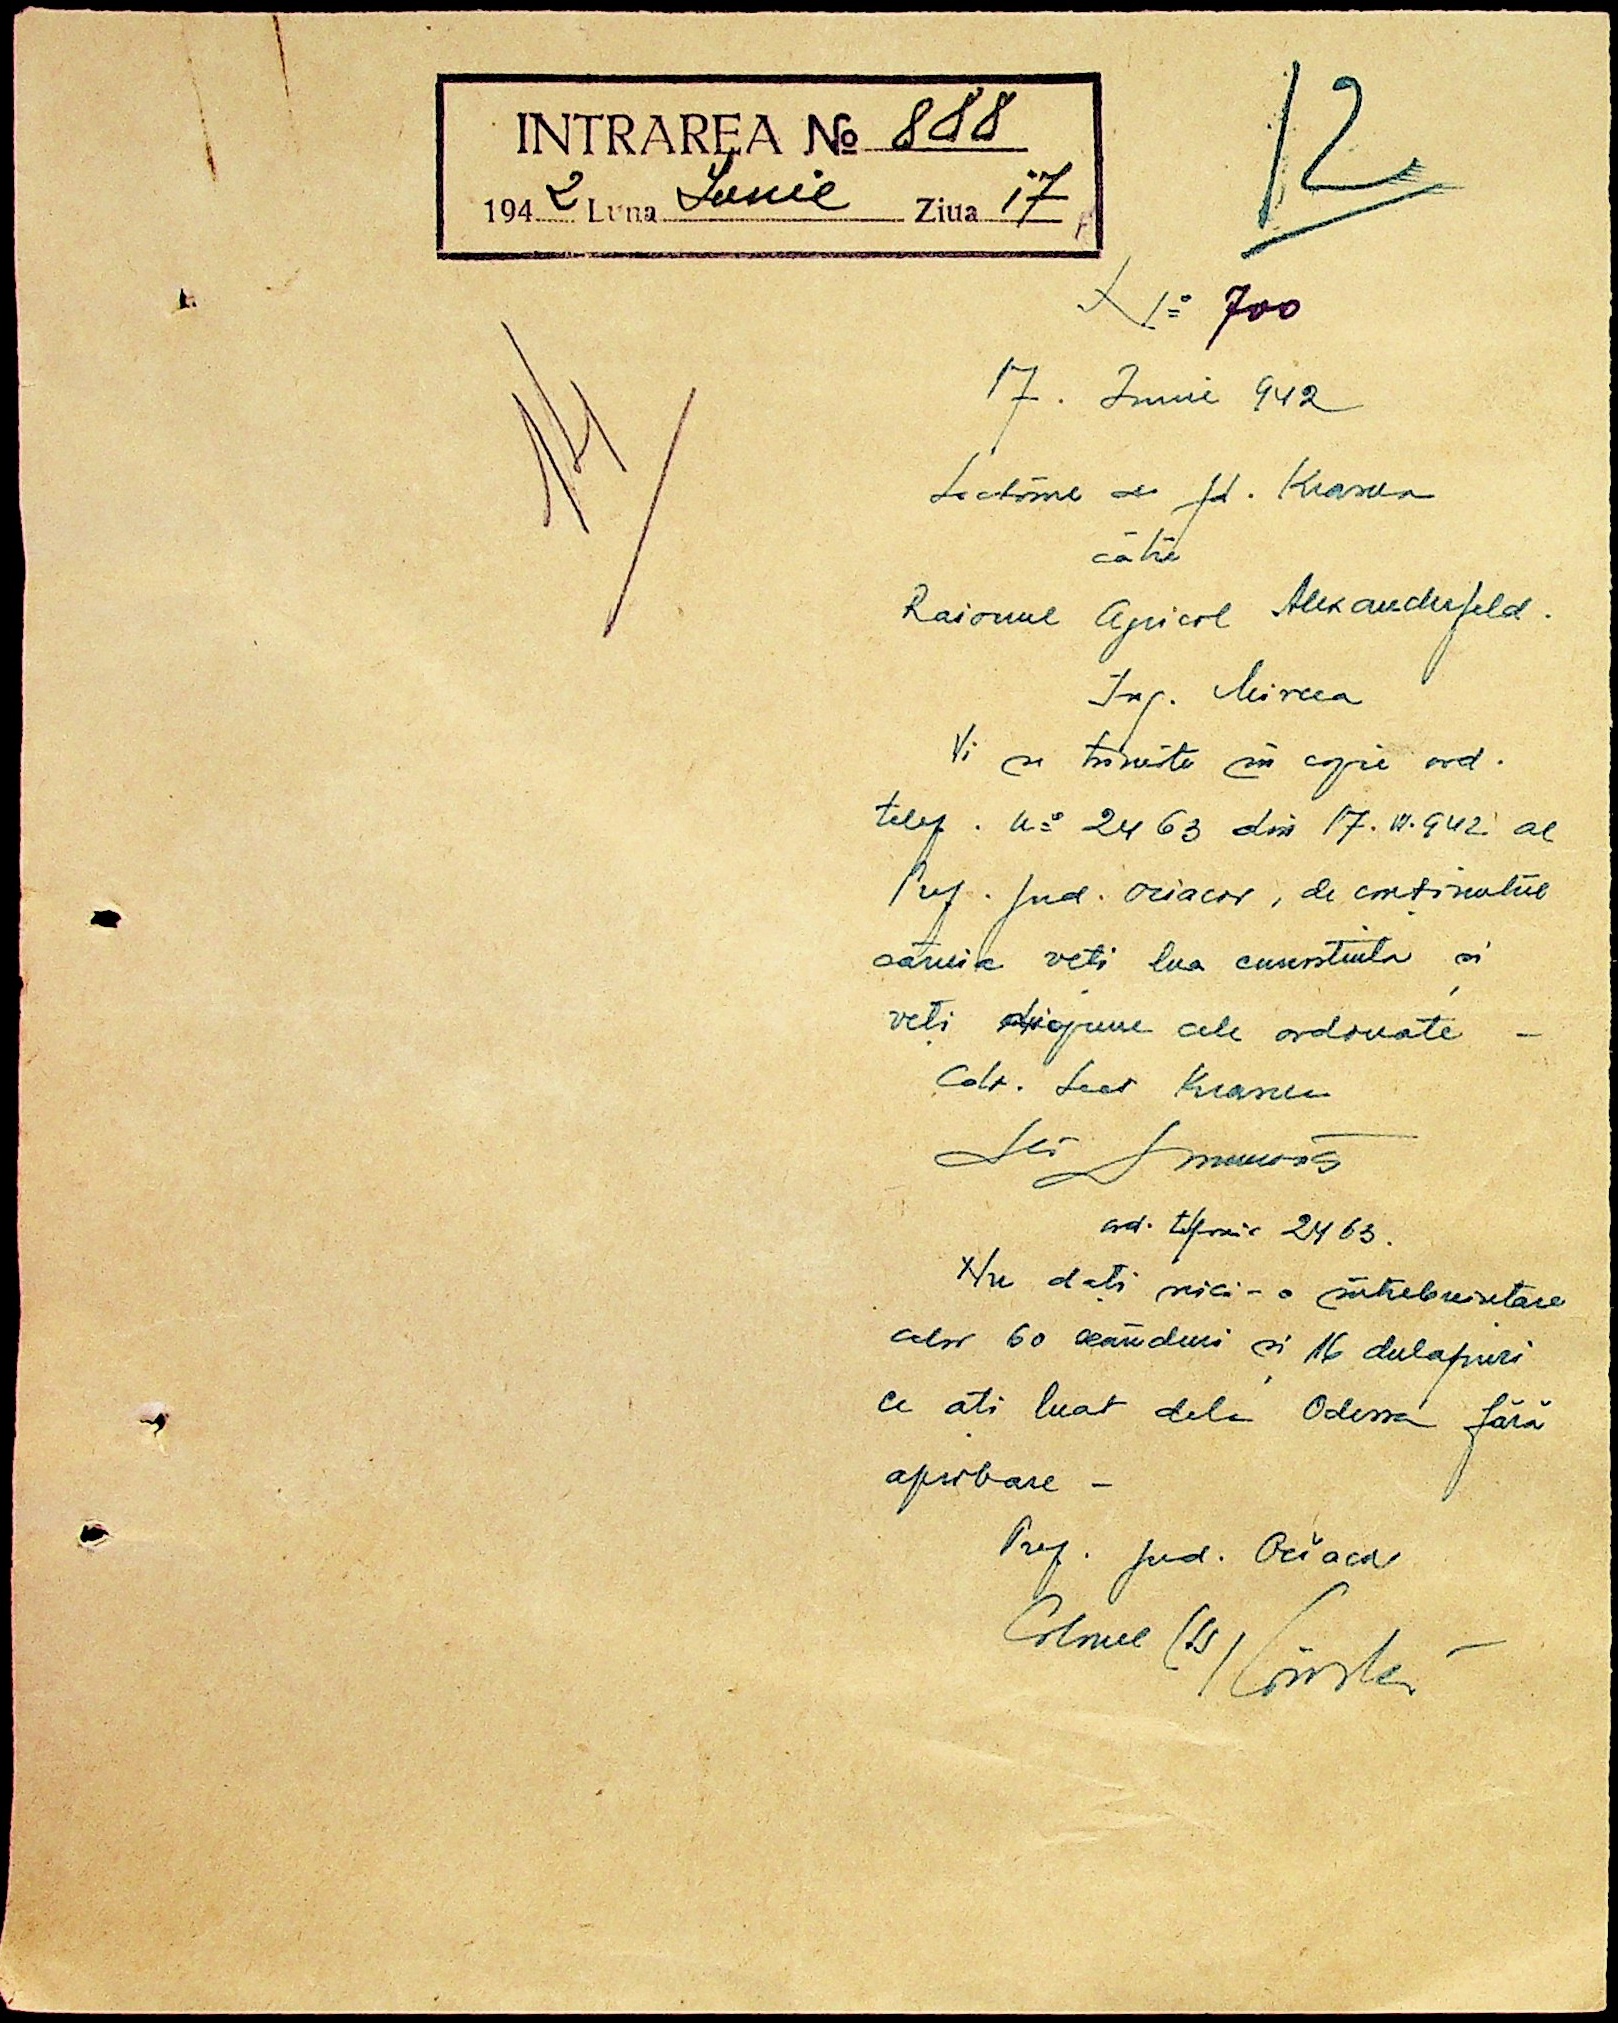 INTRAREA No 888
1942 Luna Iunie Ziua 17
12
No 700
14
17. Iunie 942
Sectorul de Jd. Krasna
către
Raionul Agricol Alexanderfeld.
Ing. Mircea
Vi se trimite în copie ord.
telef. No 2463 din 17.VI.942 al
Pref. Jud. Oceacov, de conținutul
căruia veți lua cunoștință și
veți dispune cele ordonate -
Sect Krasna
ord. telefonic 2463.
Nu dați nici-o întrebuințare
celor 60 scânduri și 16 dulapuri
ce ați luat dela Odessa fără
aprobare -
Pref. Jud. Oceacov
Colonel (ss)